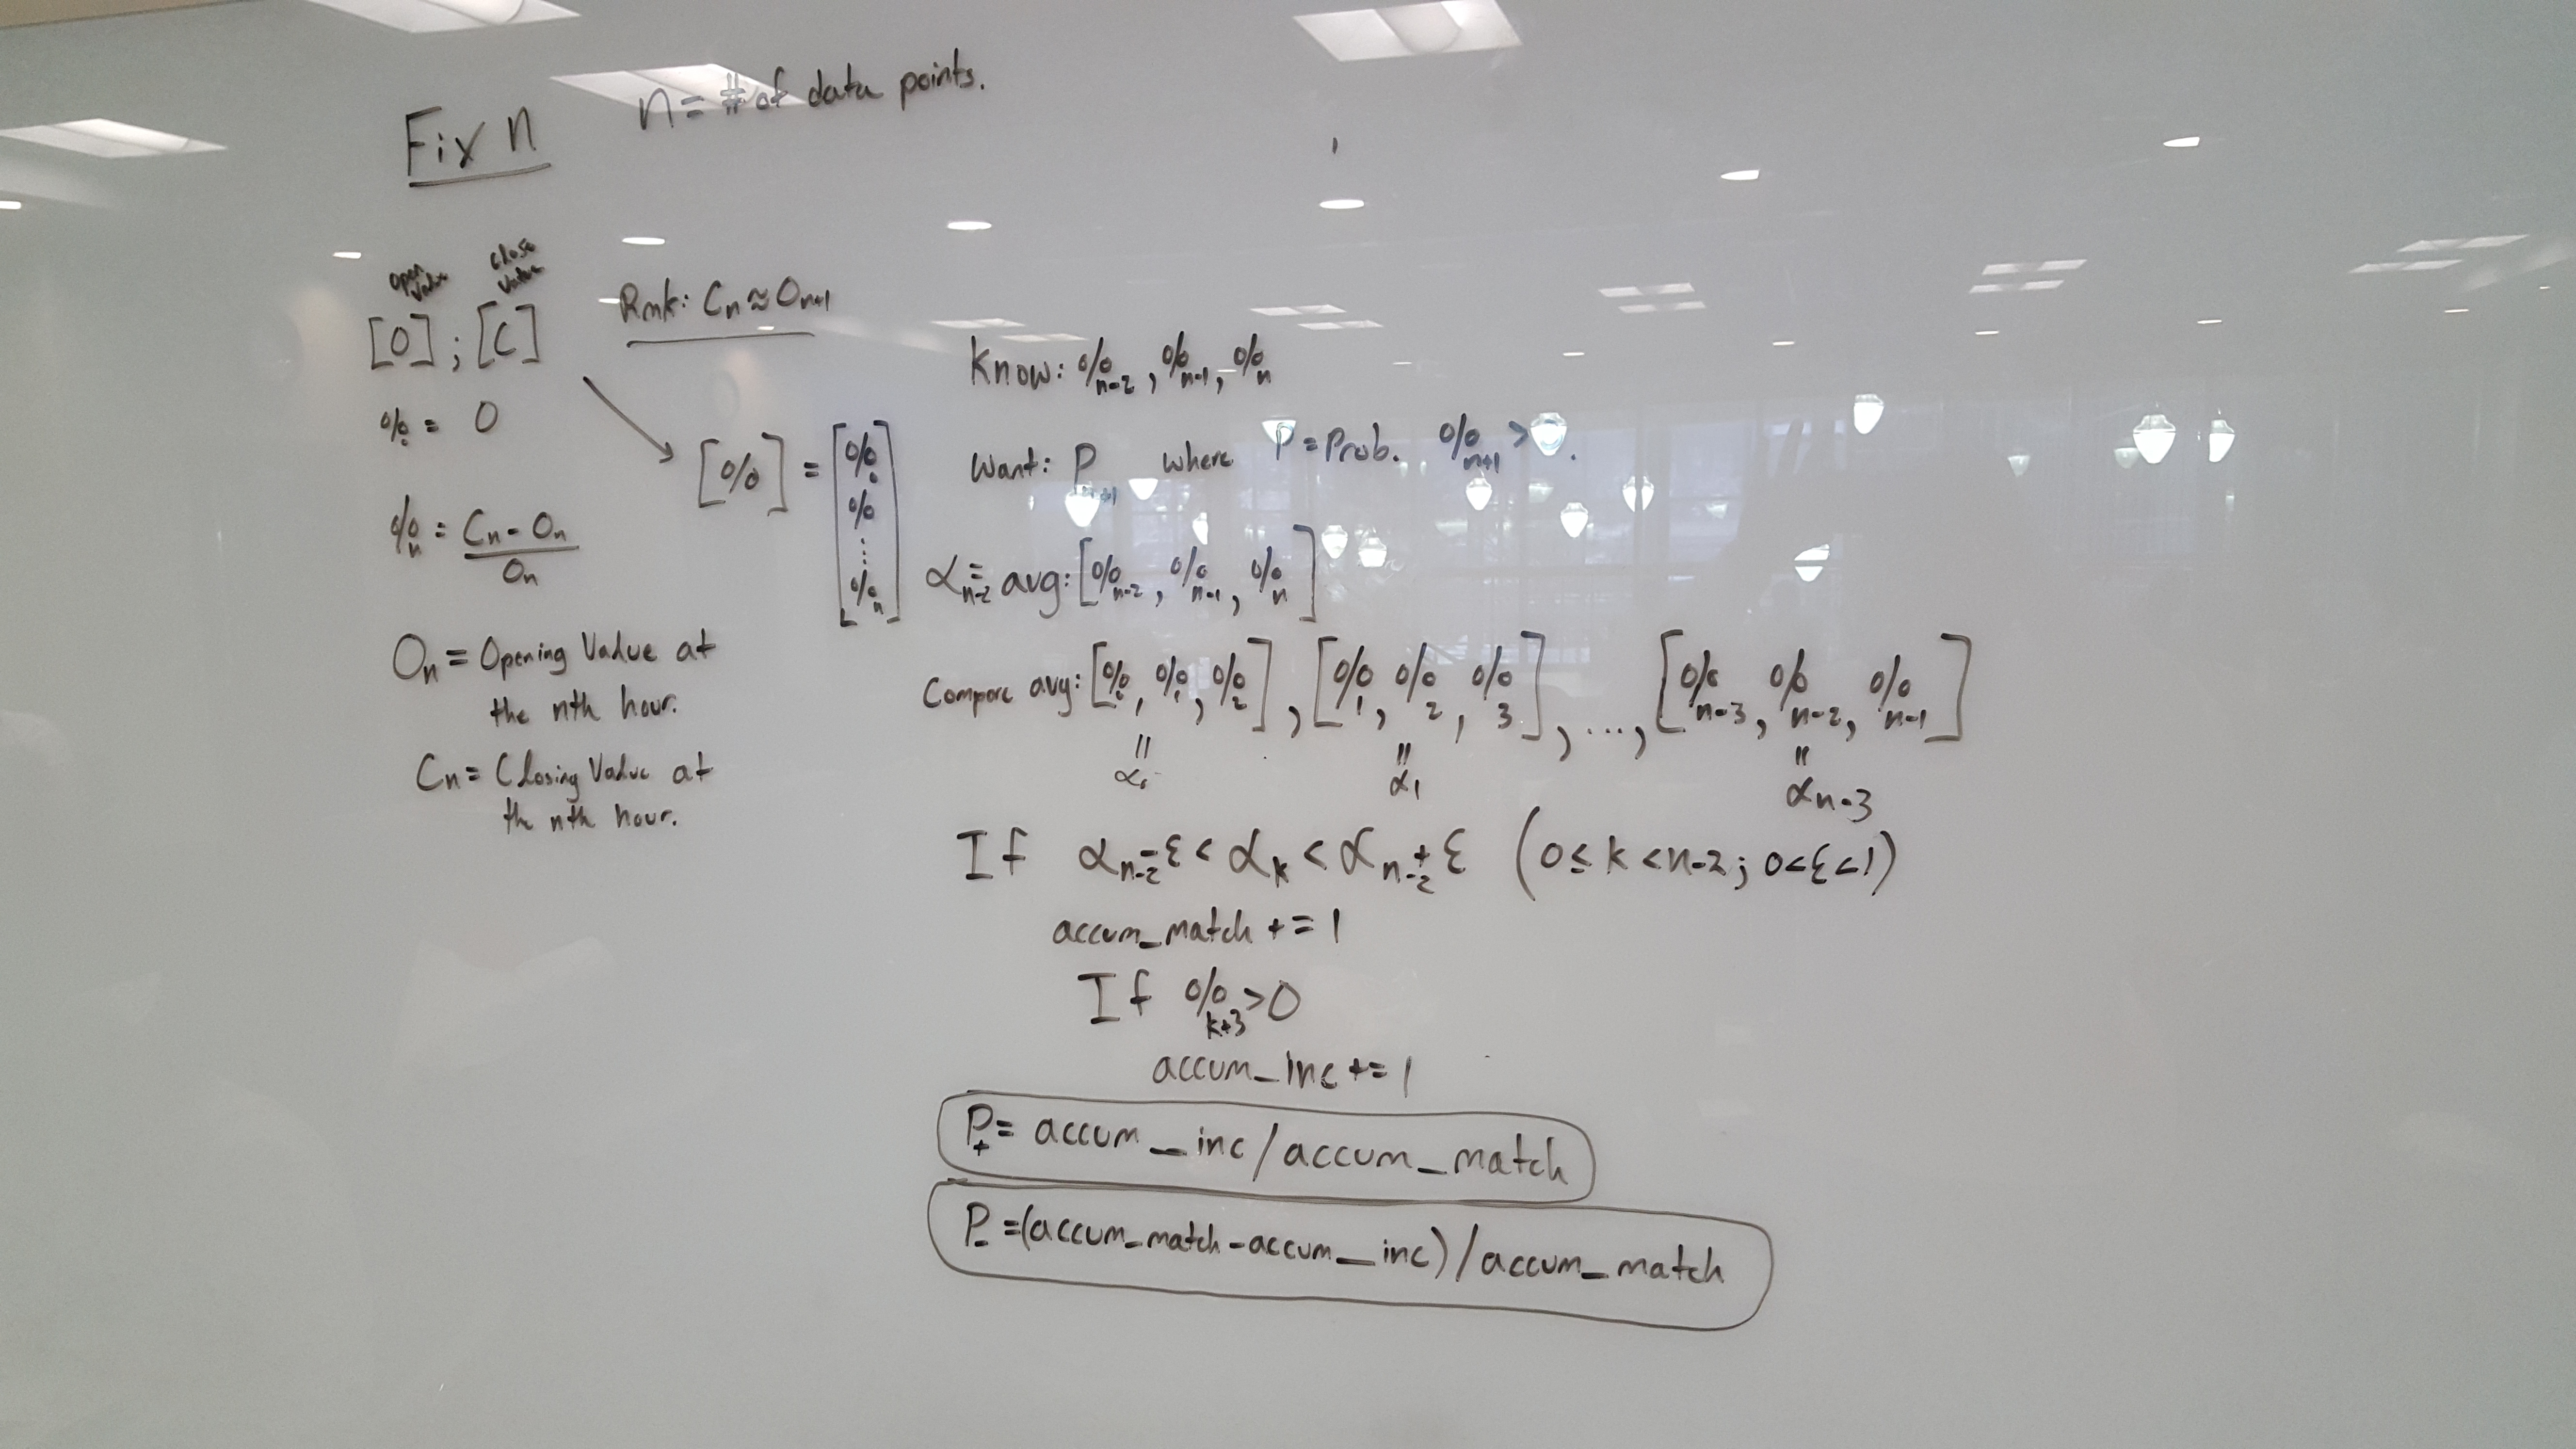 Fix n
n = # of data points.
Open Value
Close Value
[O] ; [C]
Rmk: Cₙ ≈ Oₙ₊₁
%₀ = 0
%ₙ = (Cₙ - Oₙ) / Oₙ
Oₙ = Opening Value at
the nth hour.
Cₙ = Closing Value at
the nth hour.
[%] = [%₀ %₁ ⋮ %ₙ]
Know: %ₙ₋₂, %ₙ₋₁, %ₙ
Want: Pₙ₊₁ where P = Prob. %ₙ₊₁ > 0.
αₙ₋₂ = avg: [%ₙ₋₂, %ₙ₋₁, %ₙ]
Compare avg: [%₀, %₁, %₂], [%₁, %₂, %₃], ..., [%ₙ₋₃, %ₙ₋₂, %ₙ₋₁]
= α₀ = α₁ = αₙ₋₃
If αₙ₋₂ - ε < αₖ < αₙ₋₂ + ε (0 ≤ k < n-2; 0 < ε < 1)
accum_match += 1
If %ₖ₊₃ > 0
accum_inc += 1
P₊ = accum_inc / accum_match
P₋ = (accum_match - accum_inc) / accum_match